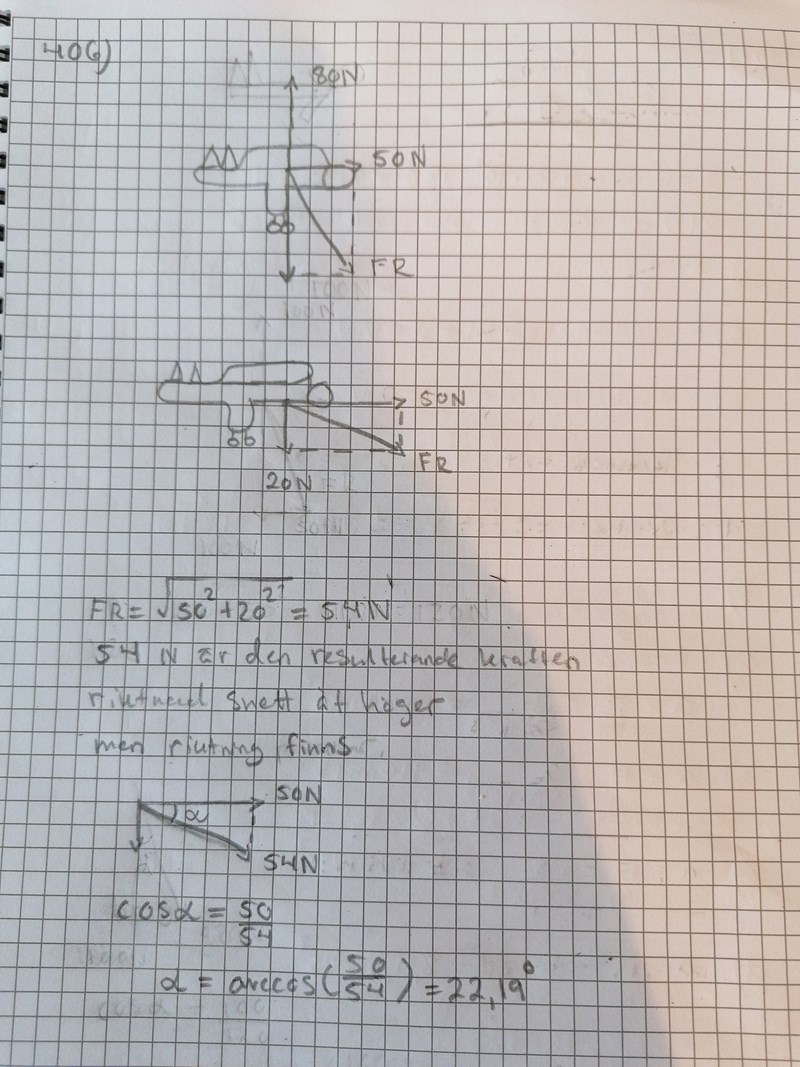 406)
80N
50N
FR
50N
FR
20N
FR = √50² + 20² = 54N
54 N är den resulterande kraften
riktnad snett åt höger
men riutning finns
50N
α
54N
cosα = 50/54
α = arccos(50/54) = 22,19°